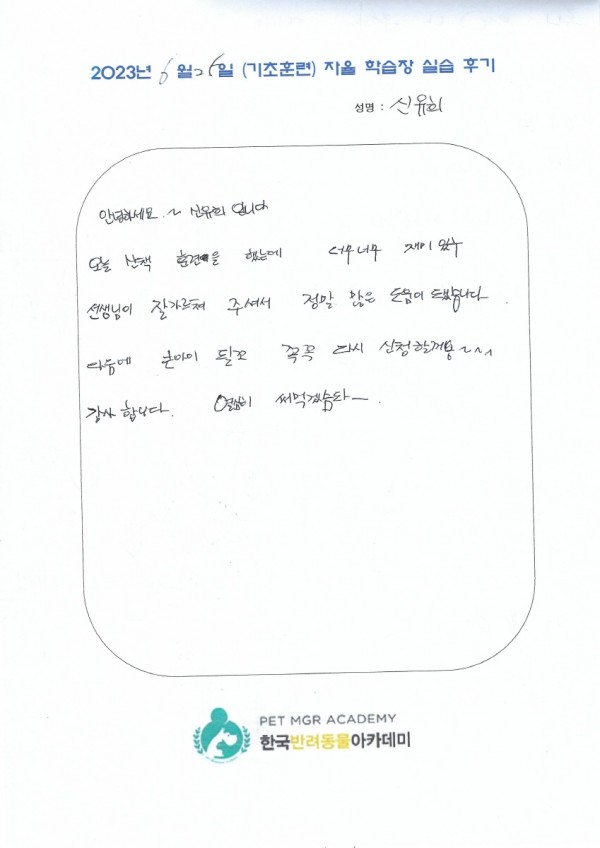 2023년 6월 25일 (기초훈련) 자율 학습장 실습 후기
성명 : 신유희
안녕하세요. ~ 신유희 입니다
오늘 산책 훈련을 했는데 너무너무 재미 있꾸
선생님이 잘가르쳐 주셔서 정말 많은 도움이 되었습니다.
다음에 큰아이 델꼬 꼭꼭 다시 신청할께용~~~
감사 합니다. 열심히 써먹겠슴다ㅡ
PET MGR ACADEMY
한국반려동물아카데미